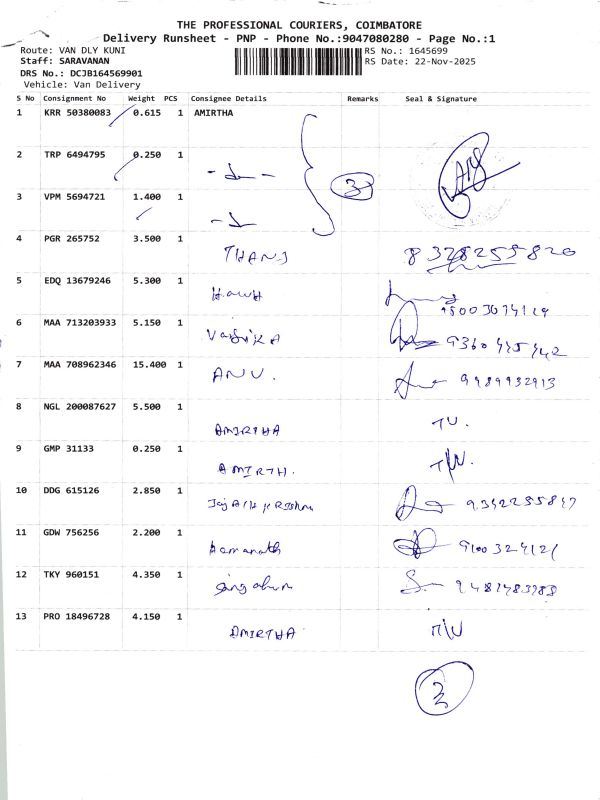 THE PROFESSIONAL COURIERS, COIMBATORE
Delivery Runsheet - PNP - Phone No.:9047080280 - Page No.:1
Route: VAN DLY KUNI RS No.: 1645699
Staff: SARAVANAN RS Date: 22-Nov-2025
DRS No.: DCJB164569901
Vehicle: Van Delivery
S No Consignment No Weight PCS Consignee Details Remarks Seal & Signature
1 KRR 50380083 0.615 1 AMIRTHA
2 TRP 6494795 0.250 1
3
3 VPM 5694721 1.400 1
4 PGR 265752 3.500 1 THANJ 8328255820
5 EDQ 13679246 5.300 1
6 MAA 713203933 5.150 1
7 MAA 708962346 15.400 1 ANU. 9989932913
8 NGL 200087627 5.500 1 AMIRTHA
9 GMP 31133 0.250 1 AMIRTH.
10 DDG 615126 2.850 1
11 GDW 756256 2.200 1
12 TKY 960151 4.350 1
13 PRO 18496728 4.150 1 AMIRTHA